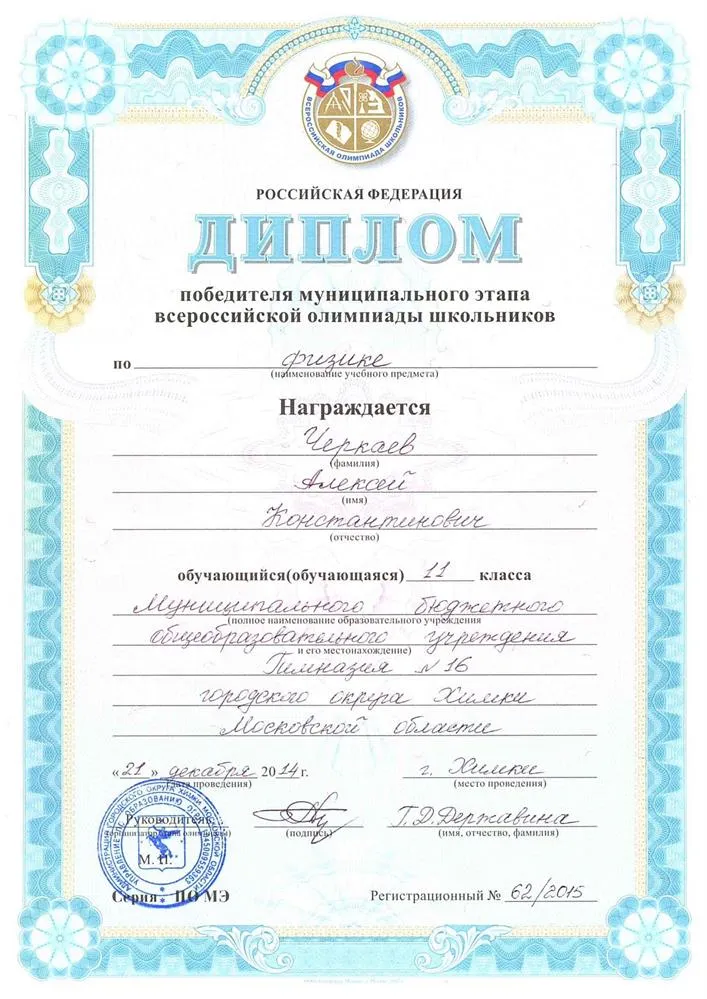 ВСЕРОССИЙСКАЯ ОЛИМПИАДА ШКОЛЬНИКОВ
РОССИЙСКАЯ ФЕДЕРАЦИЯ
ДИПЛОМ
победителя муниципального этапа
всероссийской олимпиады школьников
по физике
(наименование учебного предмета)
Награждается
Черкаев
(фамилия)
Алексей
(имя)
Константинович
(отчество)
обучающийся(обучающаяся) 11 класса
Муниципального бюджетного
(полное наименование образовательного учреждения
общеобразовательного учреждения
и его местонахождение)
Гимназия №16
городского округа Химки
Московской области
«21» декабря 2014 г. г. Химки
(дата проведения) (место проведения)
Руководитель Г.Д.Державина
(подпись) (имя, отчество, фамилия)
М. П.
Серия ПО МЭ Регистрационный № 62/2015